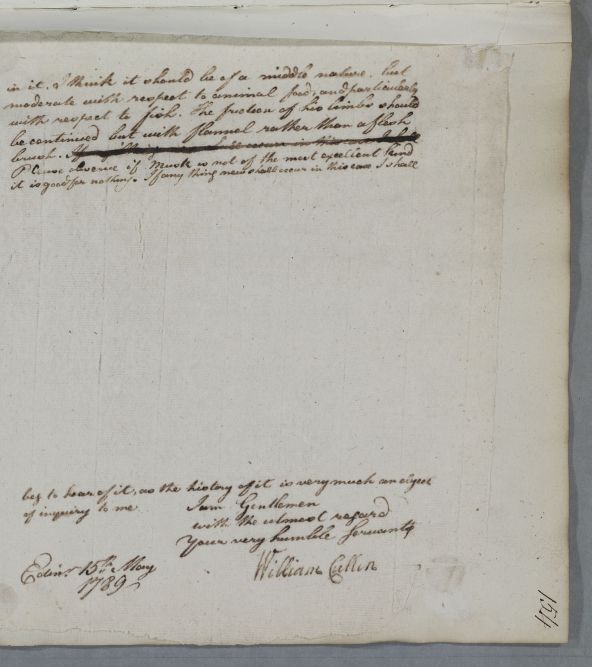 in it, I think it should be of a middle nature, but
moderate with respect to animal food, and particularly
with respect to fish. The friction of his limbs should
be continued but with flannel rather than a flesh
brush. If any thing new shall occur in this case I shall
Please observe if Musk is not of the most excellent kind
it is good for nothing. If any thing new shall occur in this case I shall
beg to hear of it, as the history of it is very much an object
of inquiry to me
I am Gentlemen
with the utmost regard
Your very humble Servant
William Cullen
Edinr. 15th May
1789
154